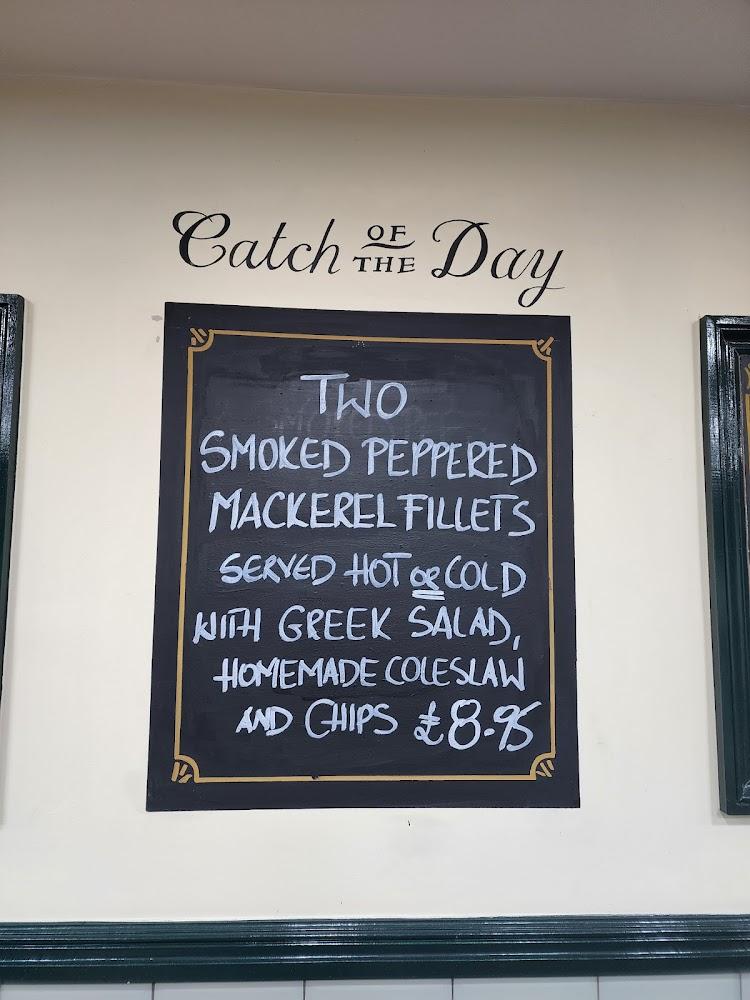 Catch OF THE Day
TWO
SMOKED PEPPERED
MACKEREL FILLETS
SERVED HOT OR COLD
WITH GREEK SALAD,
HOMEMADE COLESLAW
AND CHIPS £8.95